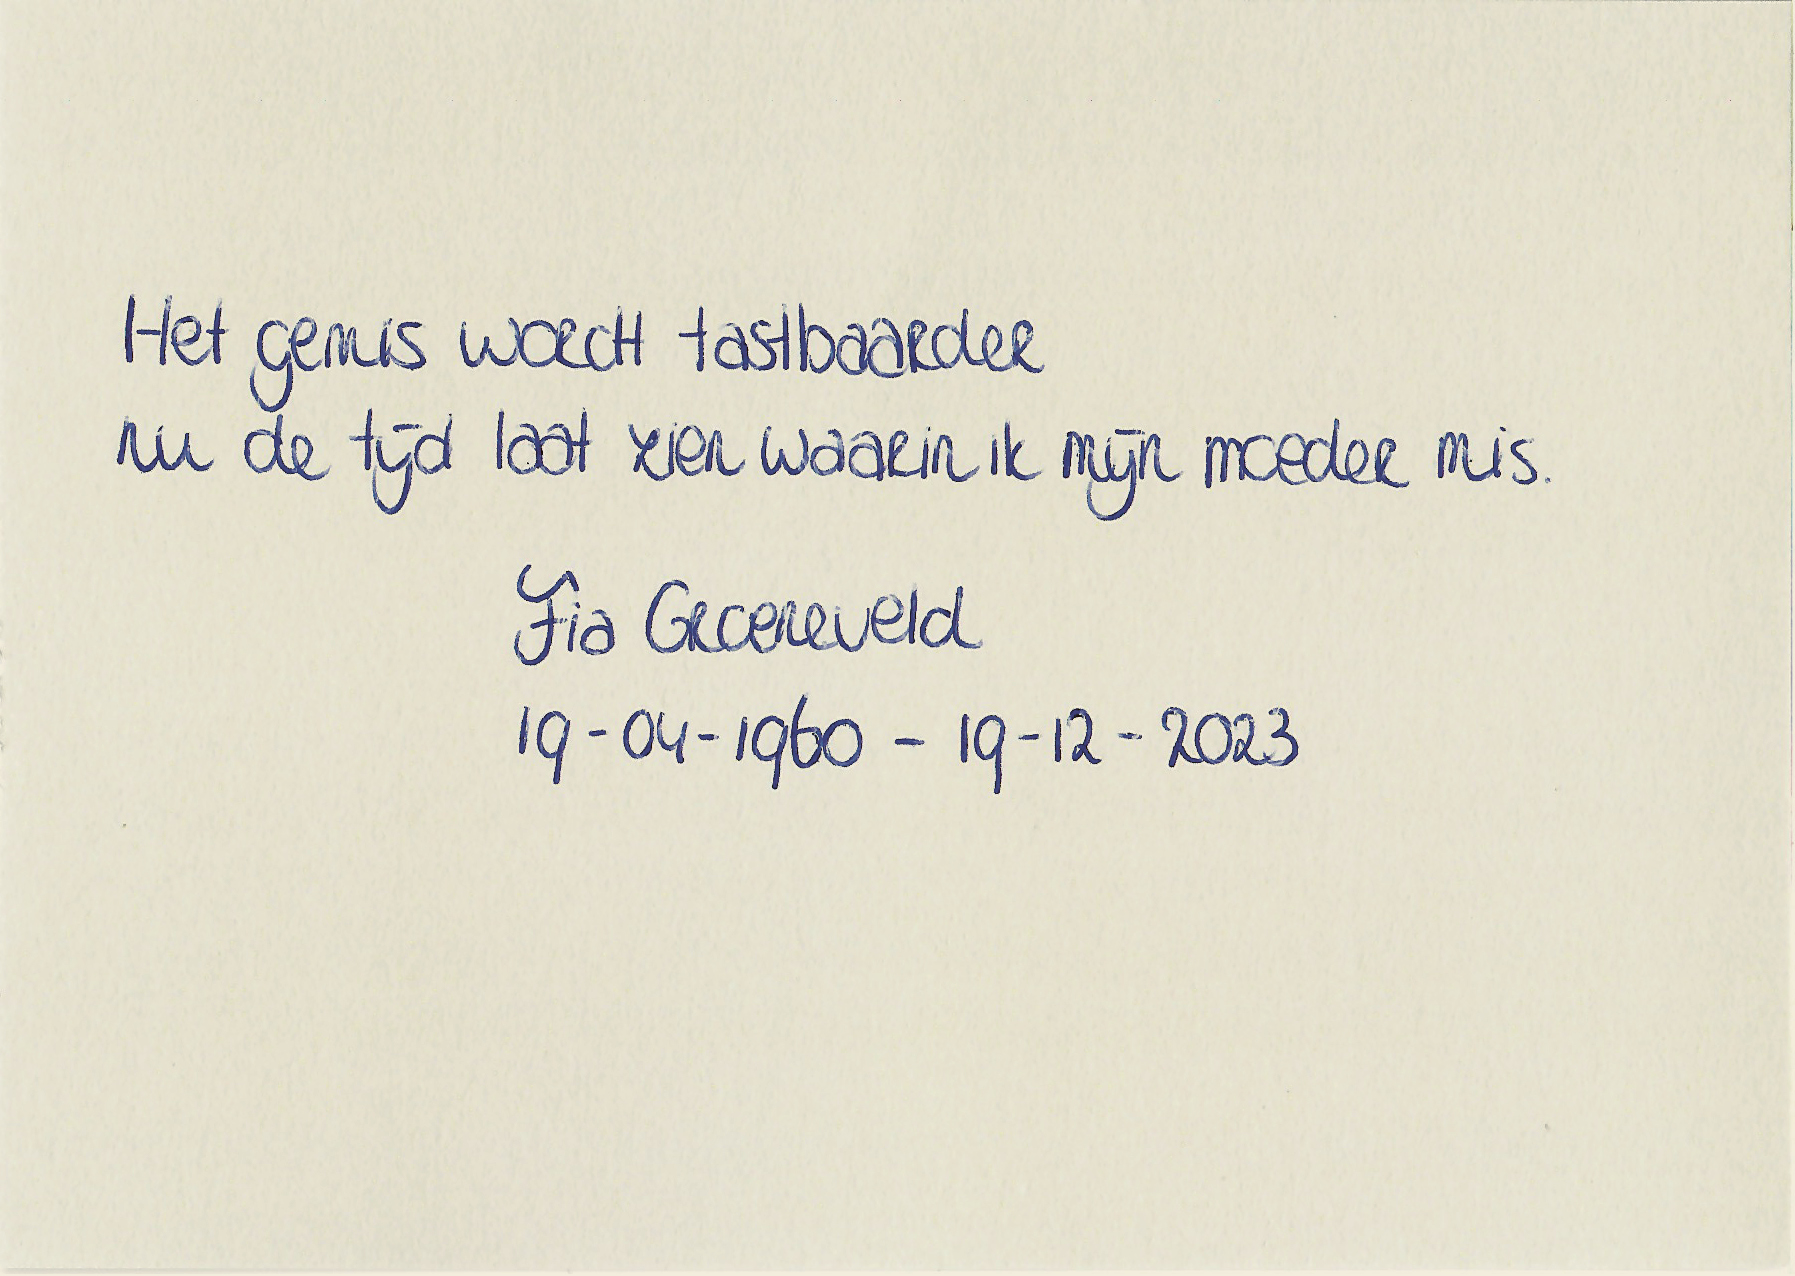 Het gemis wordt tastbaarder
nu de tijd laat zien waarin ik mijn moeder mis.
Fia Groeneveld
19-04-1960 - 19-12-2023